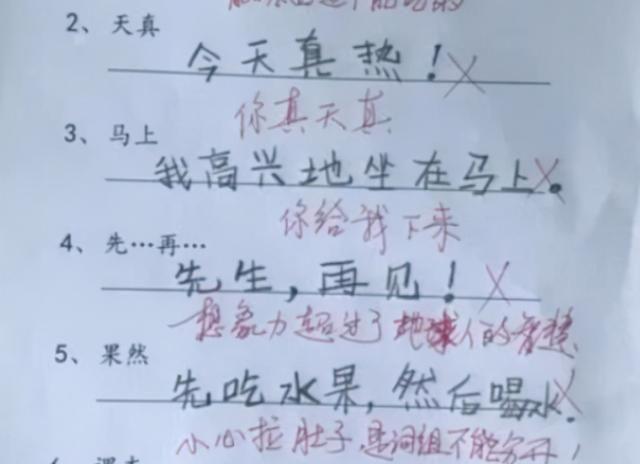 2、天真
今天真热！
你真天真
3、马上
我高兴地坐在马上。
你给我下来
4、先…再…
先生，再见！
想象力超过了地球人的智慧
5、果然
先吃水果，然后喝水.
小心拉肚子,是词组不能分开！